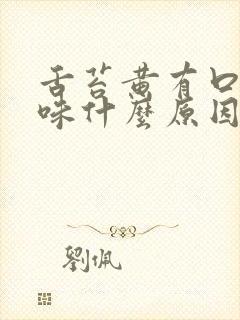 舌苔黄有口
味什麼原因
劉佩